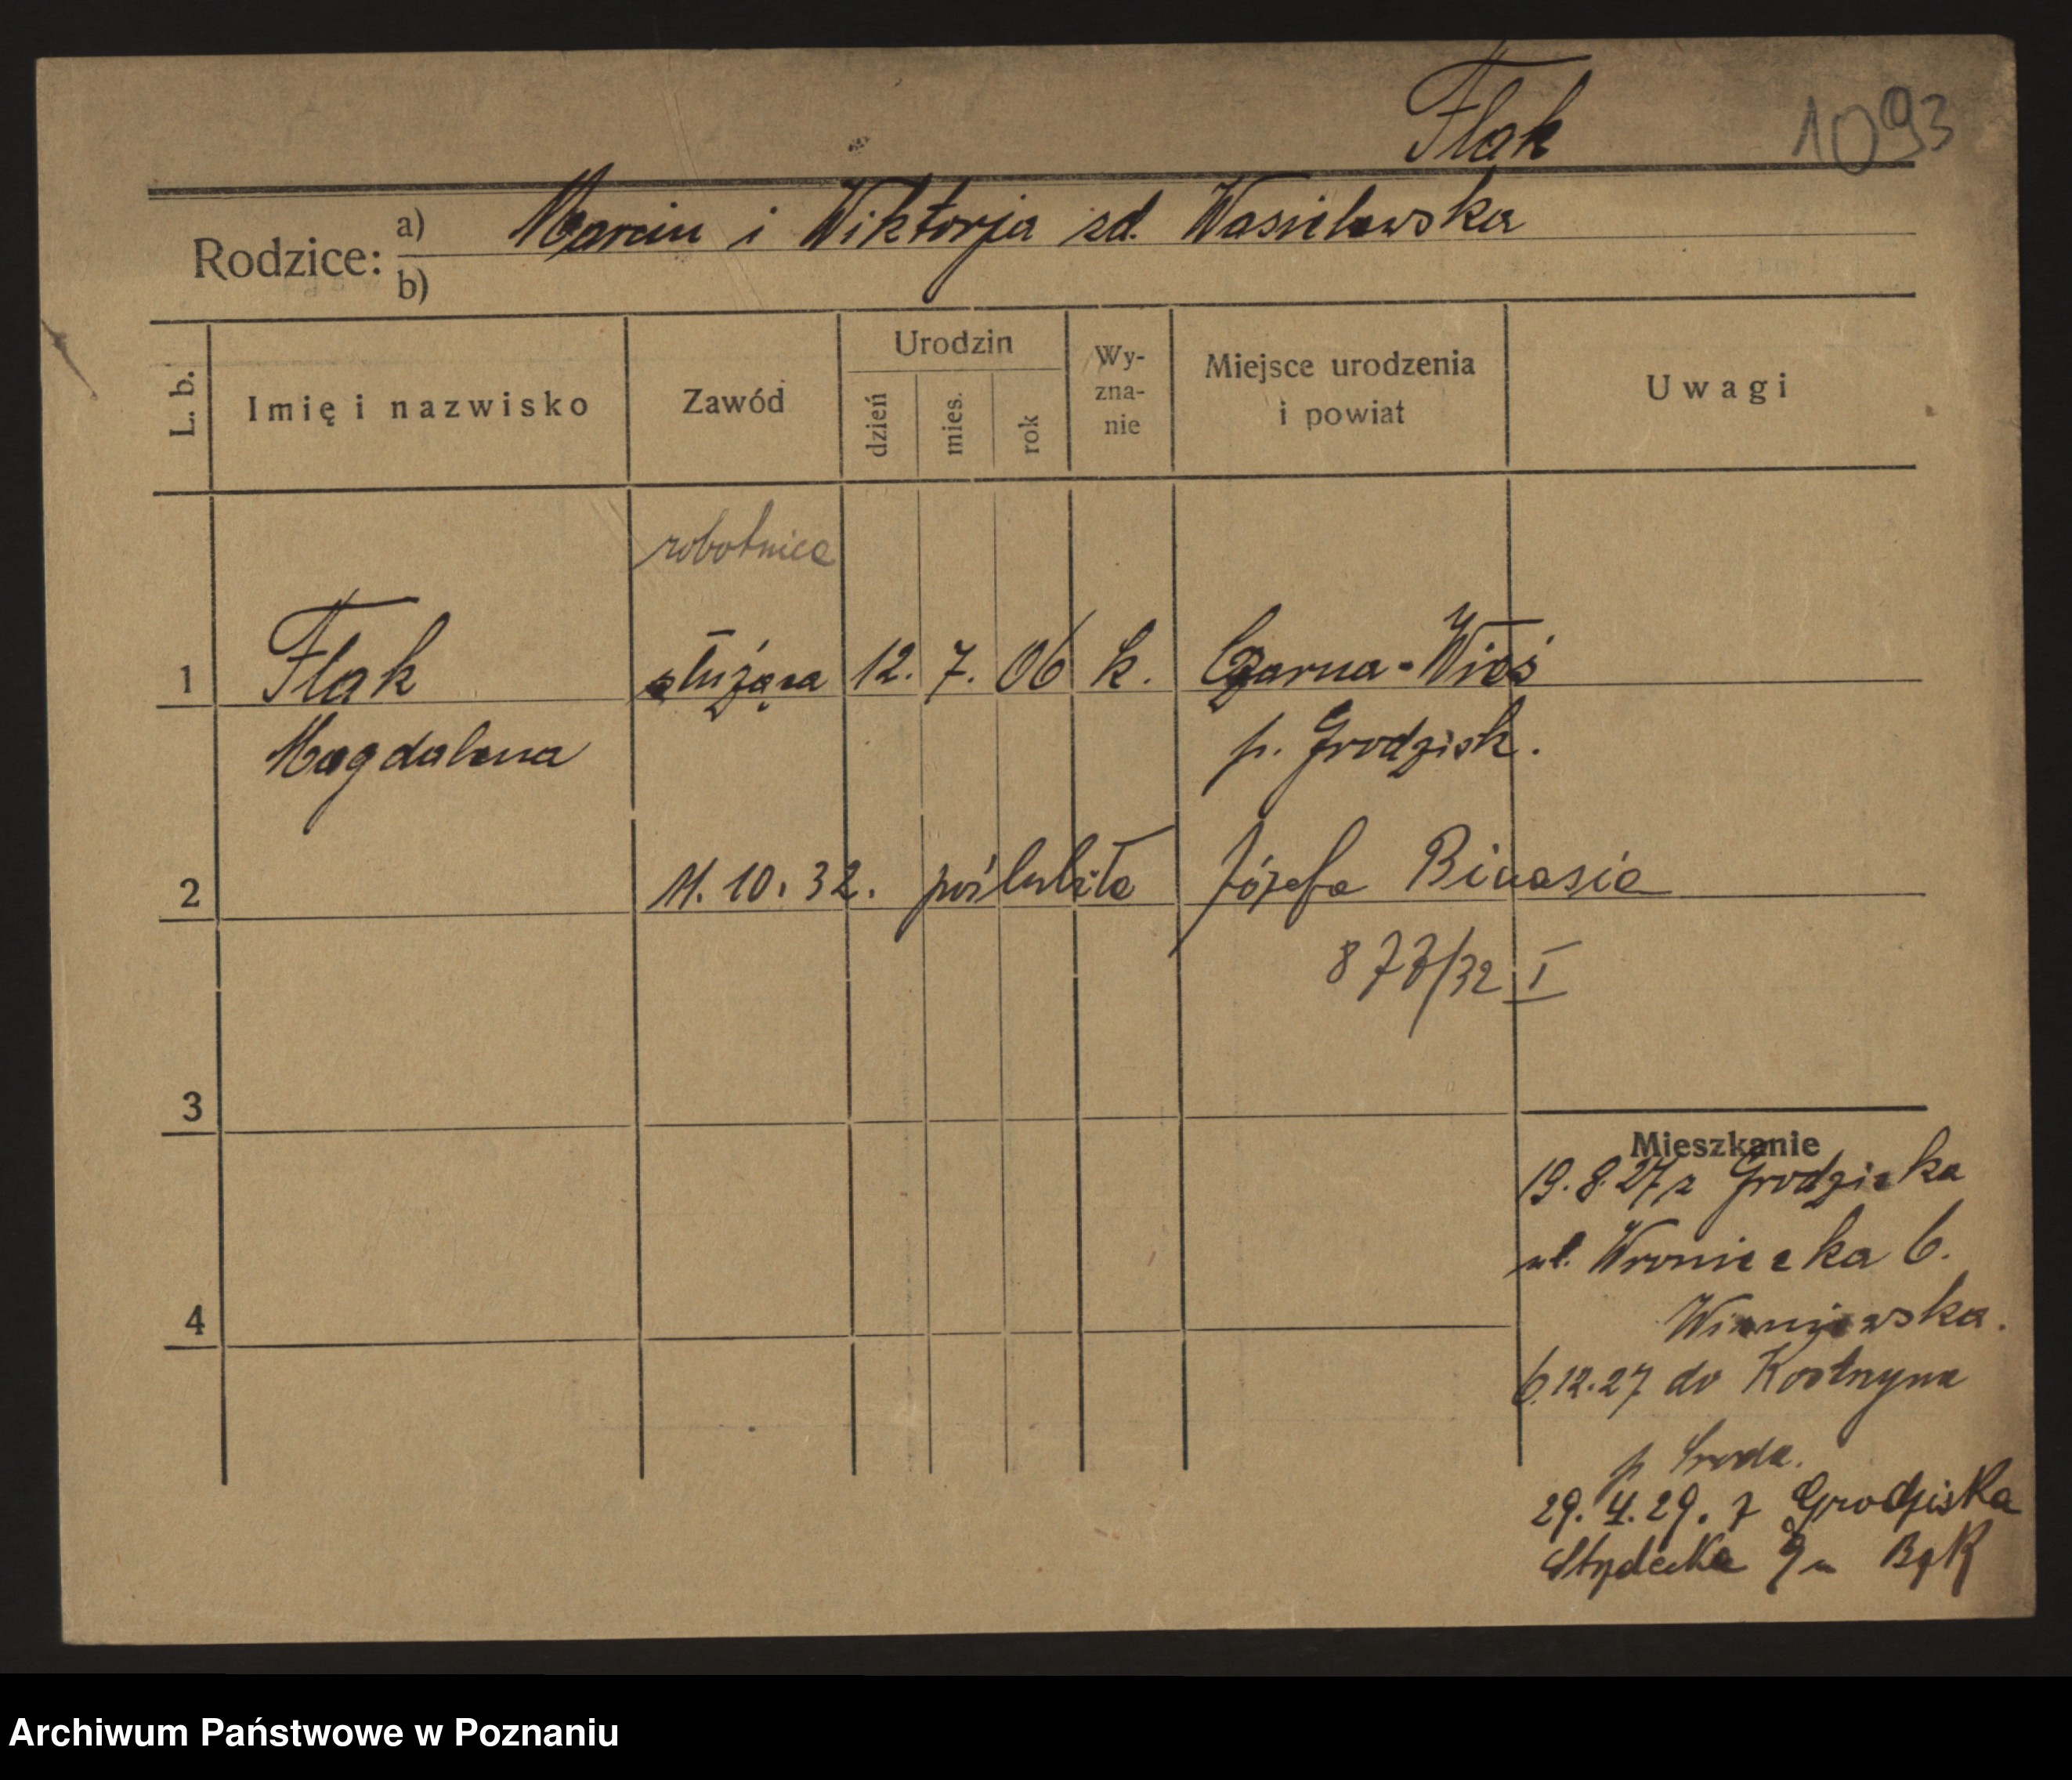 Flak 1093
Rodzice: a) Marcin i Wiktorja zd. Wasielewska
b)
L. b. Imię i nazwisko Zawód Urodzin dzień mies. rok Wy-zna-nie Miejsce urodzenia i powiat Uwagi
robotnica
1 Flak służąca 12. 7. 06 k. Czarna-Wieś
Magdalena p. Grodzisk.
2 11. 10. 32. poślubiła Józefa Binasia
877/32 I
3
Mieszkanie
19.8.27 z Grodziska
ul. Wroniecka 6.
4
Winniewska.
6.12.27 do Kostrzyna
p Środa.
29. 4. 29. z Grodziska
9
Archiwum Państwowe w Poznaniu